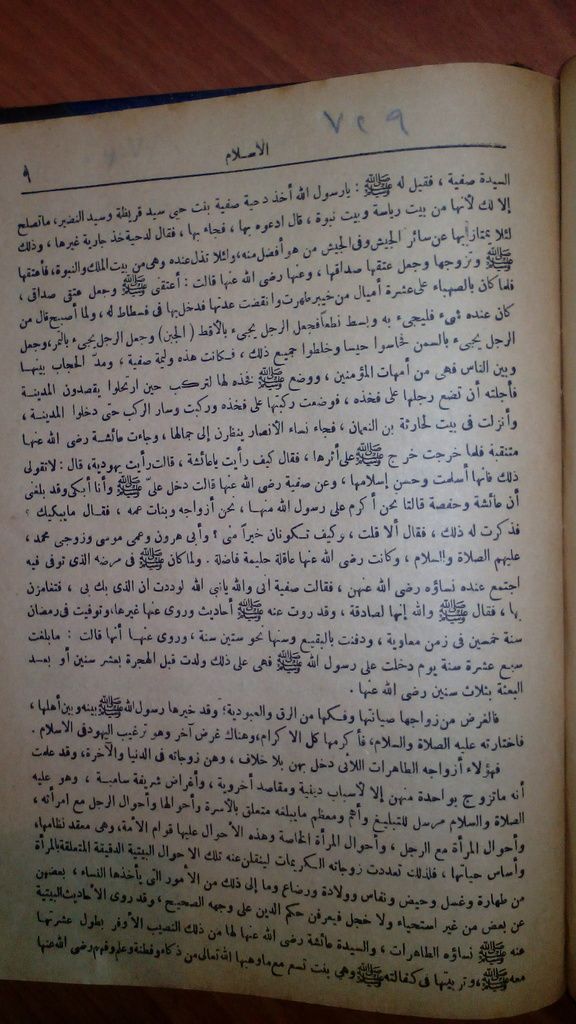 ٧٢٩
الاسلام
٩
السيدة صفية ، فقيل له ﷺ : يارسول الله أخذ دحية صفية بنت حيي سيد قريظة وسيد النضير، ماتصلح
إلا لك لأنها من بيت رياسة وبيت نبوة ، قال ادعوه بها ، فجاء بها ، فقال لدحية خذ جارية غيرها ، وذلك
لئلا يمتاز بها عن سائر الجيش وفى الجيش من هو أفضل منه، ولئلا تذل عنده وهى من بيت الملك والنبوة، فأعتقها
ﷺ وتزوجها وجعل عتقها صداقها ، وعنها رضى الله عنها قالت : أعتقنى ﷺ وجعل عتقى صداقى ،
فلما كان بالصهباء على عشرة أميال من خيبر طهرت وانقضت عدتها فدخل بها فى فسطاط له ، ولما أصبح قال من
كان عنده شىء فليجىء به وبسط نطعاً فجعل الرجل يجىء بالأقط ( الجبن ) وجعل الرجل يجىء بالتمر، وجعل
الرجل يجىء بالسمن فحاسوا حيسا وخلطوا جميع ذلك ، فكانت هذه وليمة صفية ، ومدّ الحجاب بينها
وبين الناس فهى من أمهات المؤمنين ، ووضع ﷺ فخذه لها لتركب حين ارتحلوا يقصدون المدينة
فأجلته أن تضع رجلها على فخذه ، فوضعت ركبتها على فخذه وركبت وسار الركب حتى دخلوا المدينة ،
وأنزلت فى بيت لحارثة بن النعمان ، فجاء نساء الأنصار ينظرن إلى جمالها ، وجاءت عائشة رضى الله عنها
متنقبة فلما خرجت خرج ﷺ على أثرها ، فقال كيف رأيت ياعائشة ، قالت رأيت يهودية، قال : لاتقولى
ذلك فانها أسلمت وحسن إسلامها ، وعن صفية رضى الله عنها قالت دخل علىّ ﷺ وأنا أبكى وقد بلغنى
أن عائشة وحفصة قالتا نحن أكرم على رسول الله منها ، نحن أزواجه وبنات عمه ، فقال مايبكيك ؟
فذكرت له ذلك ، فقال ألا قلت ، وكيف تكونان خيراً منى ؟ وأبى هرون وعمى موسى وزوجى محمد ،
عليهم الصلاة والسلام ، وكانت رضى الله عنها عاقلة حليمة فاضلة . ولما كان ﷺ فى مرضه الذى توفى فيه
اجتمع عنده نساؤه رضى الله عنهن ، فقالت صفية انى والله يانبى الله لوددت ان الذى بك بى ، فتغامزن
بها ، فقال ﷺ والله إنها لصادقة ، وقد روت عنه ﷺ أحاديث وروى عنها غيرها، وتوفيت فى رمضان
سنة خمسين فى زمن معاوية ، ودفنت بالبقيع وسنها نحو ستين سنة ، وروى عنها أنها قالت : مابلغت
سبع عشرة سنة يوم دخلت على رسول الله ﷺ فهى على ذلك ولدت قبل الهجرة بعشر سنين أو بعد
البعثة بثلاث سنين رضى الله عنها .
فالغرض من زواجها صيانتها وفكها من الرق والعبودية؛ وقد خيرها رسول الله ﷺ بينه وبين أهلها ،
فاختارته عليه الصلاة والسلام، فأكرمها كل الاكرام، وهناك غرض آخر وهو ترغيب اليهود فى الاسلام .
فهؤلاء أزواجه الطاهرات اللاتى دخل بهن بلا خلاف ، وهن زوجاته فى الدنيا والآخرة، وقد علمت
أنه ماتزوج بواحدة منهن إلا لأسباب دينية ومقاصد أخروية ، وأغراض شريفة سامية ، وهو عليه
الصلاة والسلام مرسل للتبليغ وأهم ومعظم مايبلغه متعلق بالأسرة وأحوالها وأحوال الرجل مع امرأته ،
وأحوال المرأة مع الرجل ، وأحوال المرأة الخاصة وهذه الأحوال عليها قوام الأمة، وهى معقد نظامها،
وأساس حياتها ، فلذلك تعددت زوجاته الكريمات لينقلن عنه تلك الاحوال البيتية الدقيقة المتعلقة بالمرأة
من طهارة وغسل وحيض ونفاس وولادة ورضاع وما إلى ذلك من الأمور التى يأخذها النساء ، بعضهن
عن بعض من غير استحياء ولا خجل فيعرفن حكم الدين على وجهه الصحيح ، وقد روى الأحاديث البيتية
عنه ﷺ نساؤه الطاهرات ، والسيدة عائشة رضى الله عنها لها من ذلك النصيب الأوفر بطول عشرتها
معه ﷺ، وتربيتها فى كفالته ﷺ وهى بنت تسع مع ماوهبها الله تعالى من ذكاء وفطنة وعلم وفهم رضى الله عنها